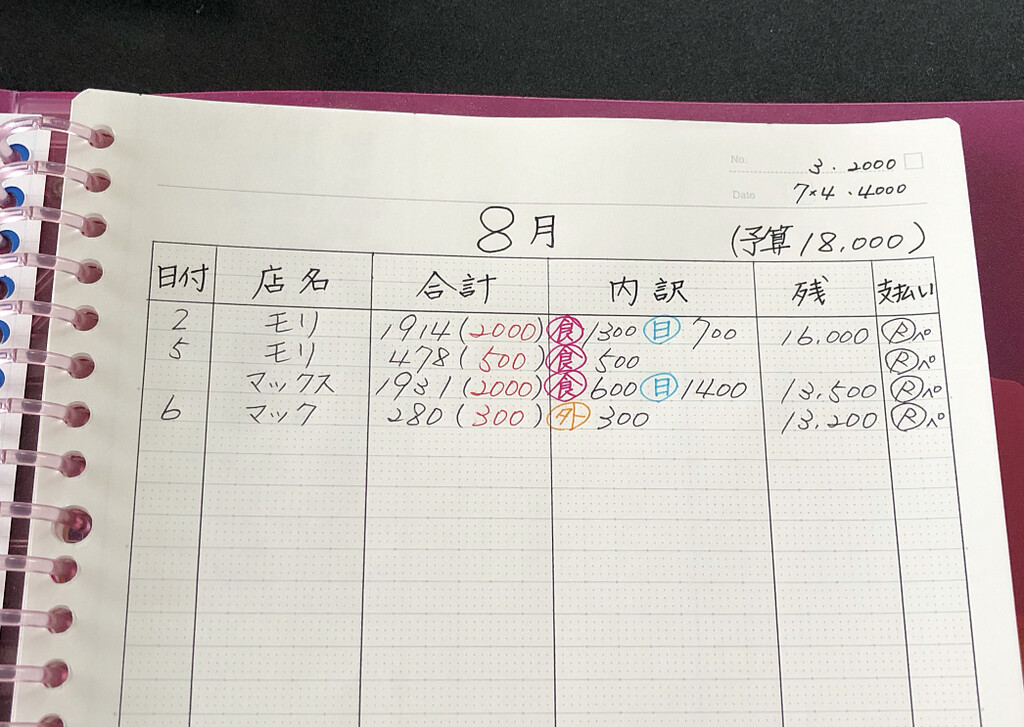 No. 3.2000
Date 7×4.4000
8月
(予算18,000)
日付 店名 合計 内訳 残 支払い
2 モリ 1914(2000) 食 1300 日 700 16.000 Rペ
5 モリ 478(500) 食 500 Rペ
マックス 1931(2000) 食 600 日 1400 13,500 Rペ
6 マック 280(300) 外 300 13,200 Rペ